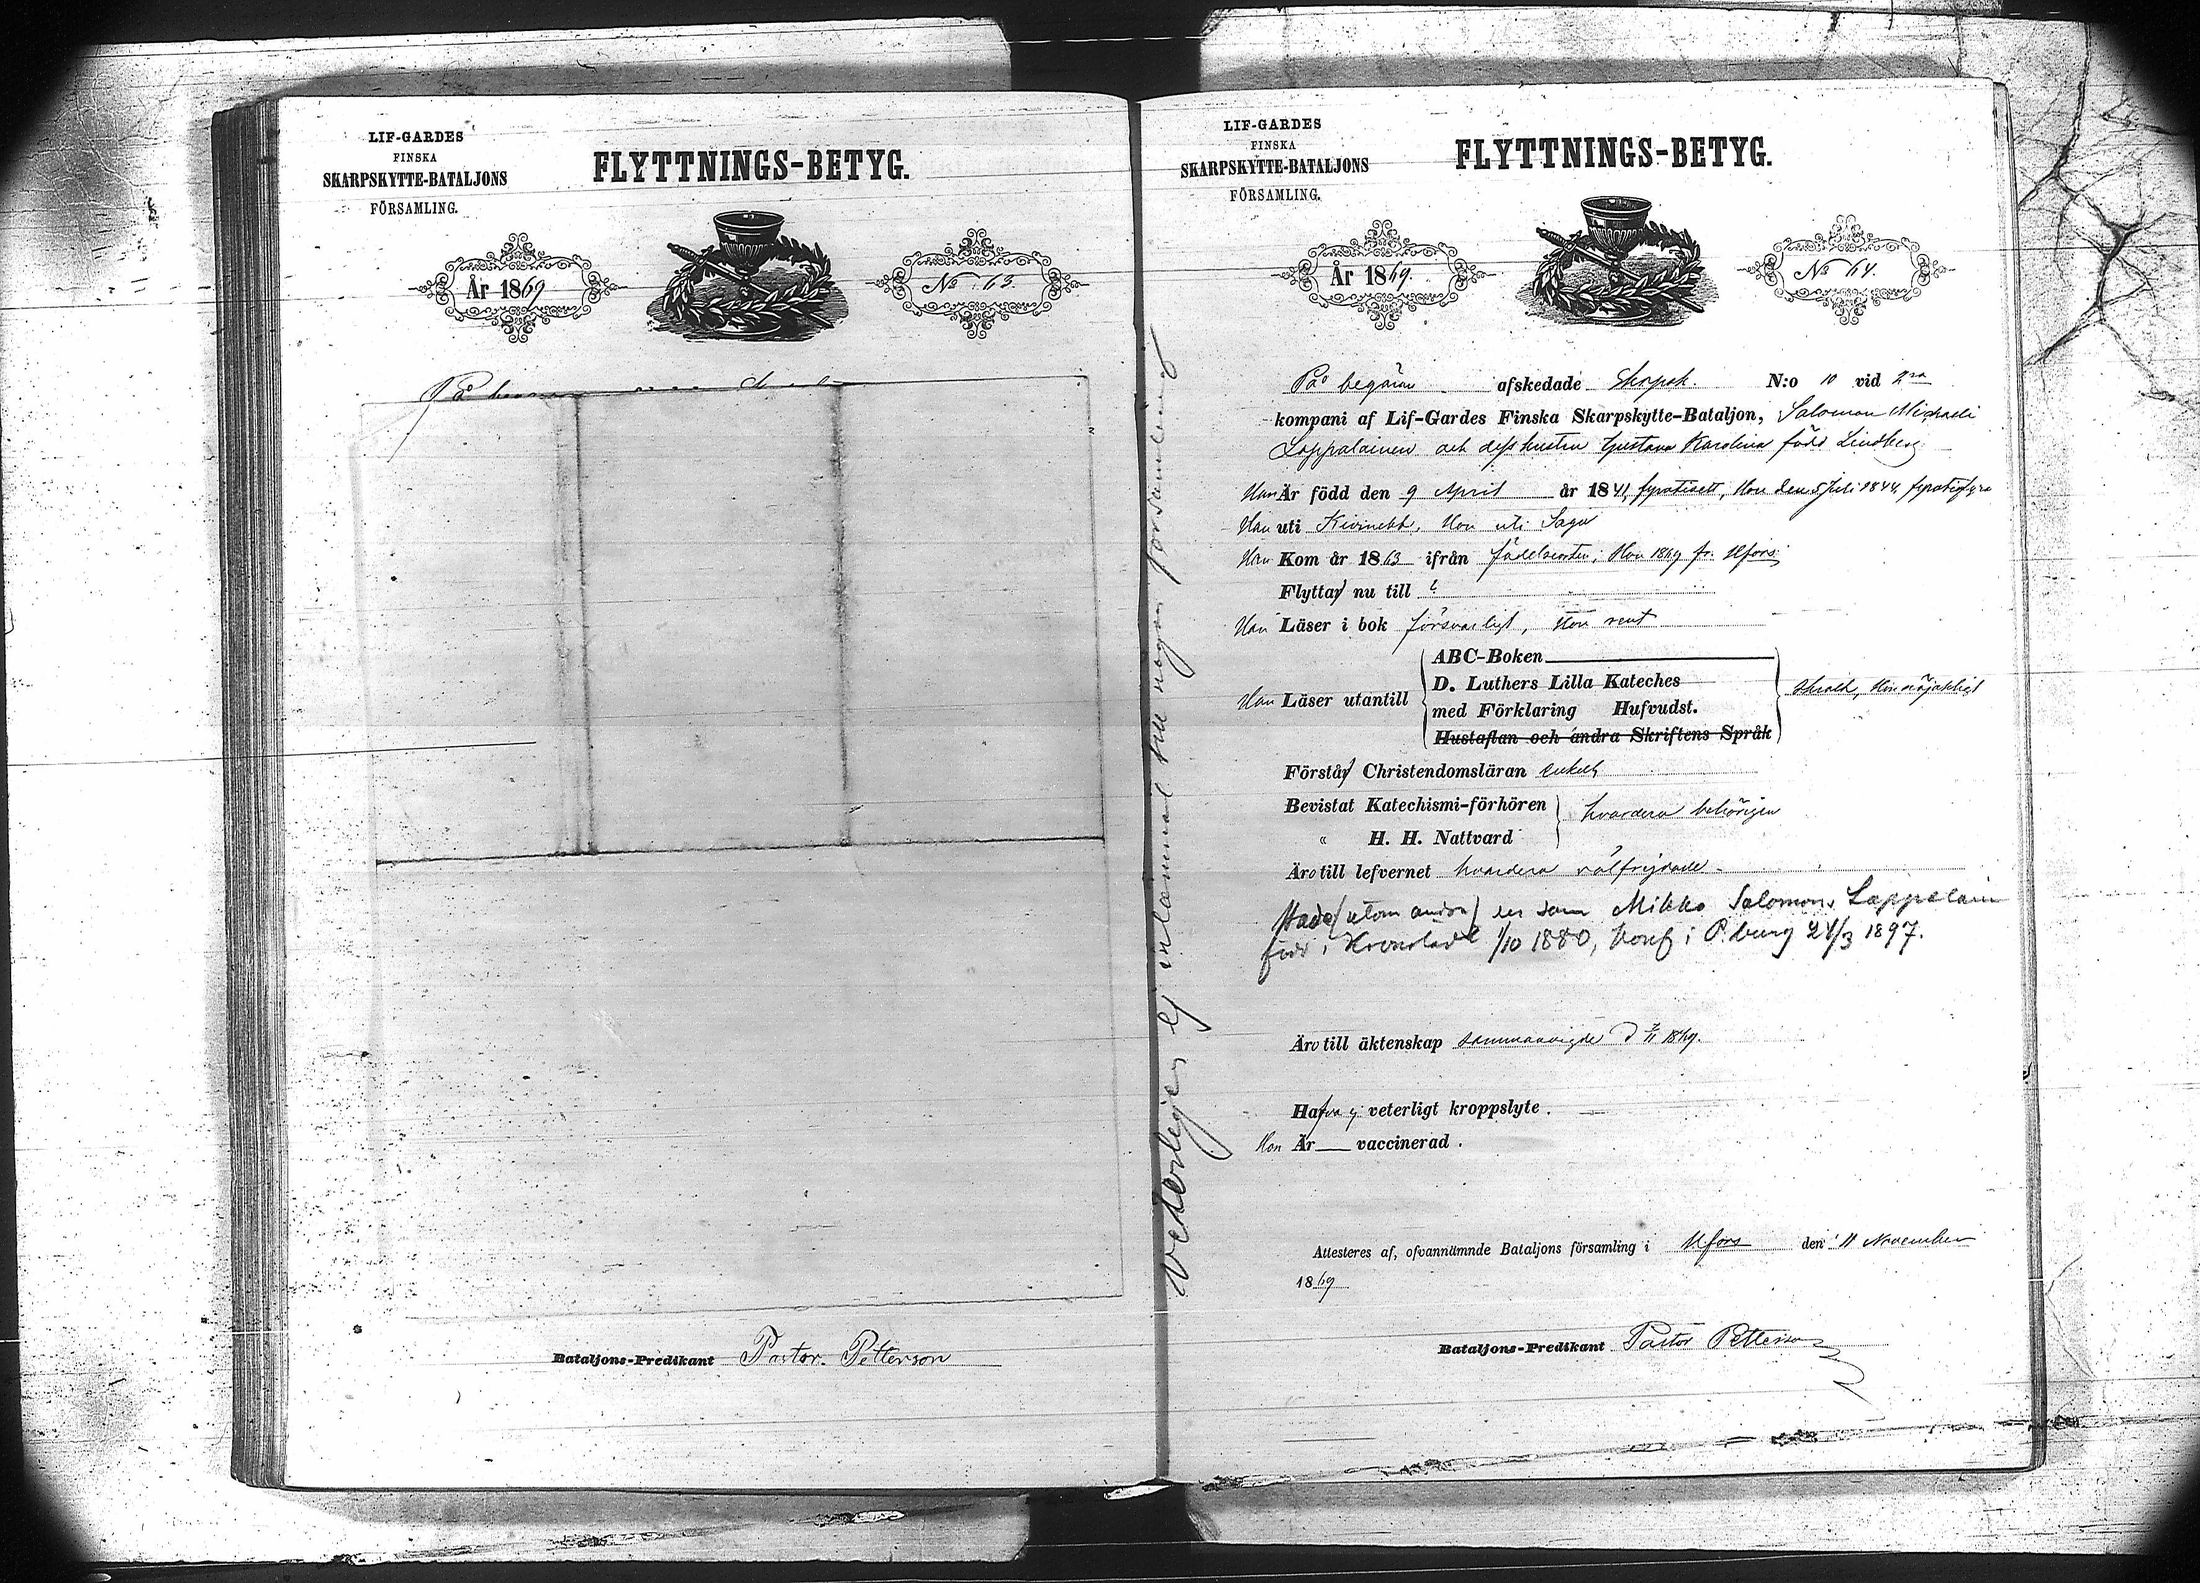 LIF-GARDES
FINSKA
SKARPSKYTTE-BATALJONS
FÖRSAMLING.
FLYTTNINGS-BETYG.
År 1869
No 63.
På
Bataljons-Predikant Pastor Petterson
vederligen ej inlämnat till någon församling
LIF-GARDES
FINSKA
SKARPSKYTTE-BATALJONS
FÖRSAMLING.
FLYTTNINGS-BETYG.
År 1869.
No 64.
På begäran afskedade Skrpsk. N:o 10 vid 2ra
kompani af Lif-Gardes Finska Skarpskytte-Bataljon, Salomon Michaeli
Lappalainen och dess hustru Gustava Karolina född Lindberg
Han Är född den 9 April år 1841, fyratioett, Hon den 5 Juli 1844, fyratiofyra
Han uti Kivinebb, Hon uti Sagu
Han Kom år 1863 ifrån födelseorten, Hon 1869 fr. Hfors
Flytta nu till ?
Han Läser i bok försvarligt, Hon rent
Han Läser utantill
ABC-Boken
D. Luthers Lilla Kateches
med Förklaring Hufvudst.
Hustaflan och andra Skriftens Språk
svagt, Hon nöjaktigt
Förstå Christendomsläran enkelt
Bevistat Katechismi-förhören
" H. H. Nattvard
hvardera behörigen
Äro till lefvernet hvardera välfrejdade
Hade (utom andra) en son Mikko Salomon Lappalain
född i Kronstadt 1/10 1880, konf i P.burg 24/3 1897.
Äro till äktenskap sammanvigde d 7/11 1869.
Hafva ej veterligt kroppslyte.
Hon Är vaccinerad.
Attesteres af, ofvannämnde Bataljons församling i Hfors den 11 November
1869
Bataljons-Predikant Pastor Petterson